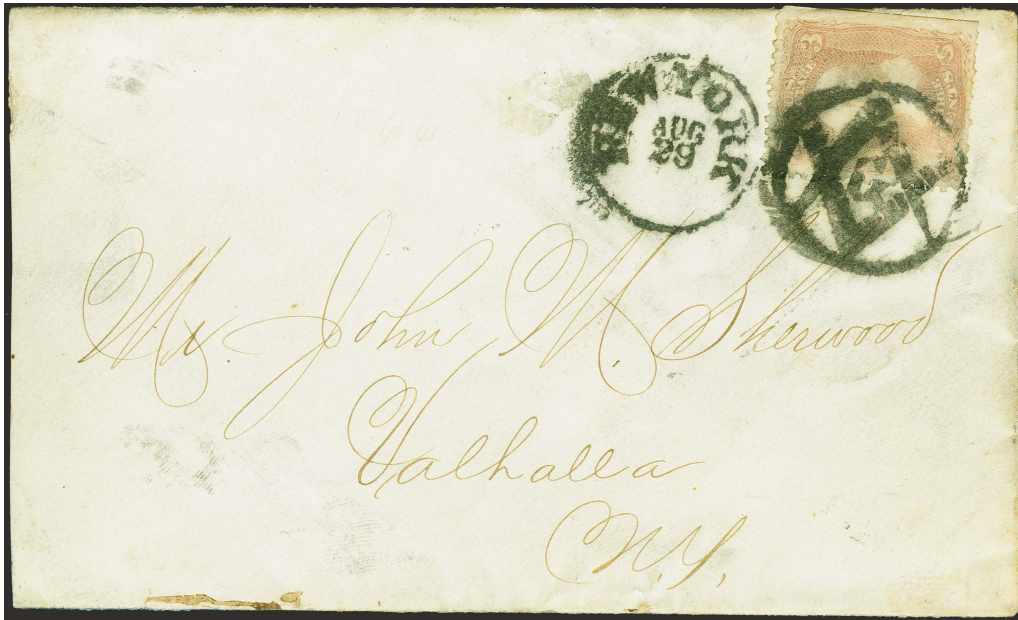 NEW YORK
AUG
29
3 3
Mr. John M. Sherwood
Valhalla
N.Y.